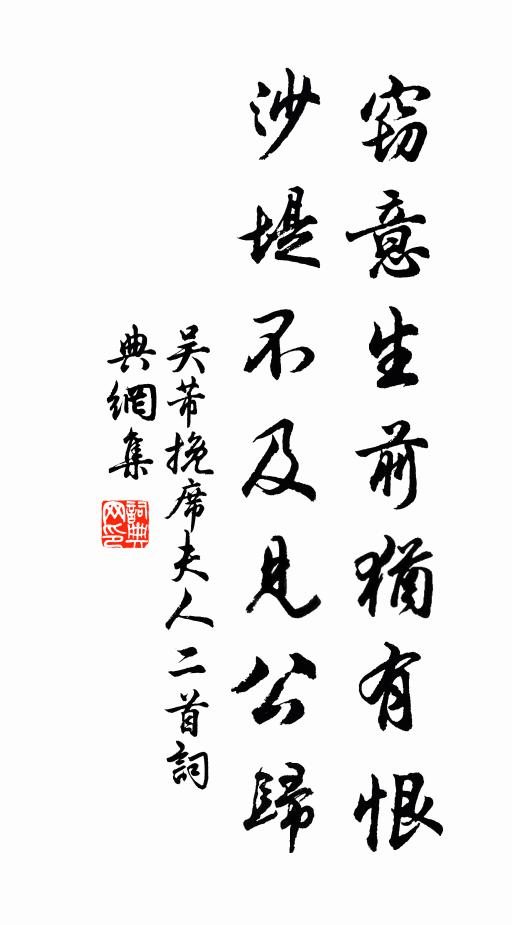 窃意生前猶有恨
沙堤不及見公歸
吴芾挽席夫人二首詞
典網集
詞典
网印